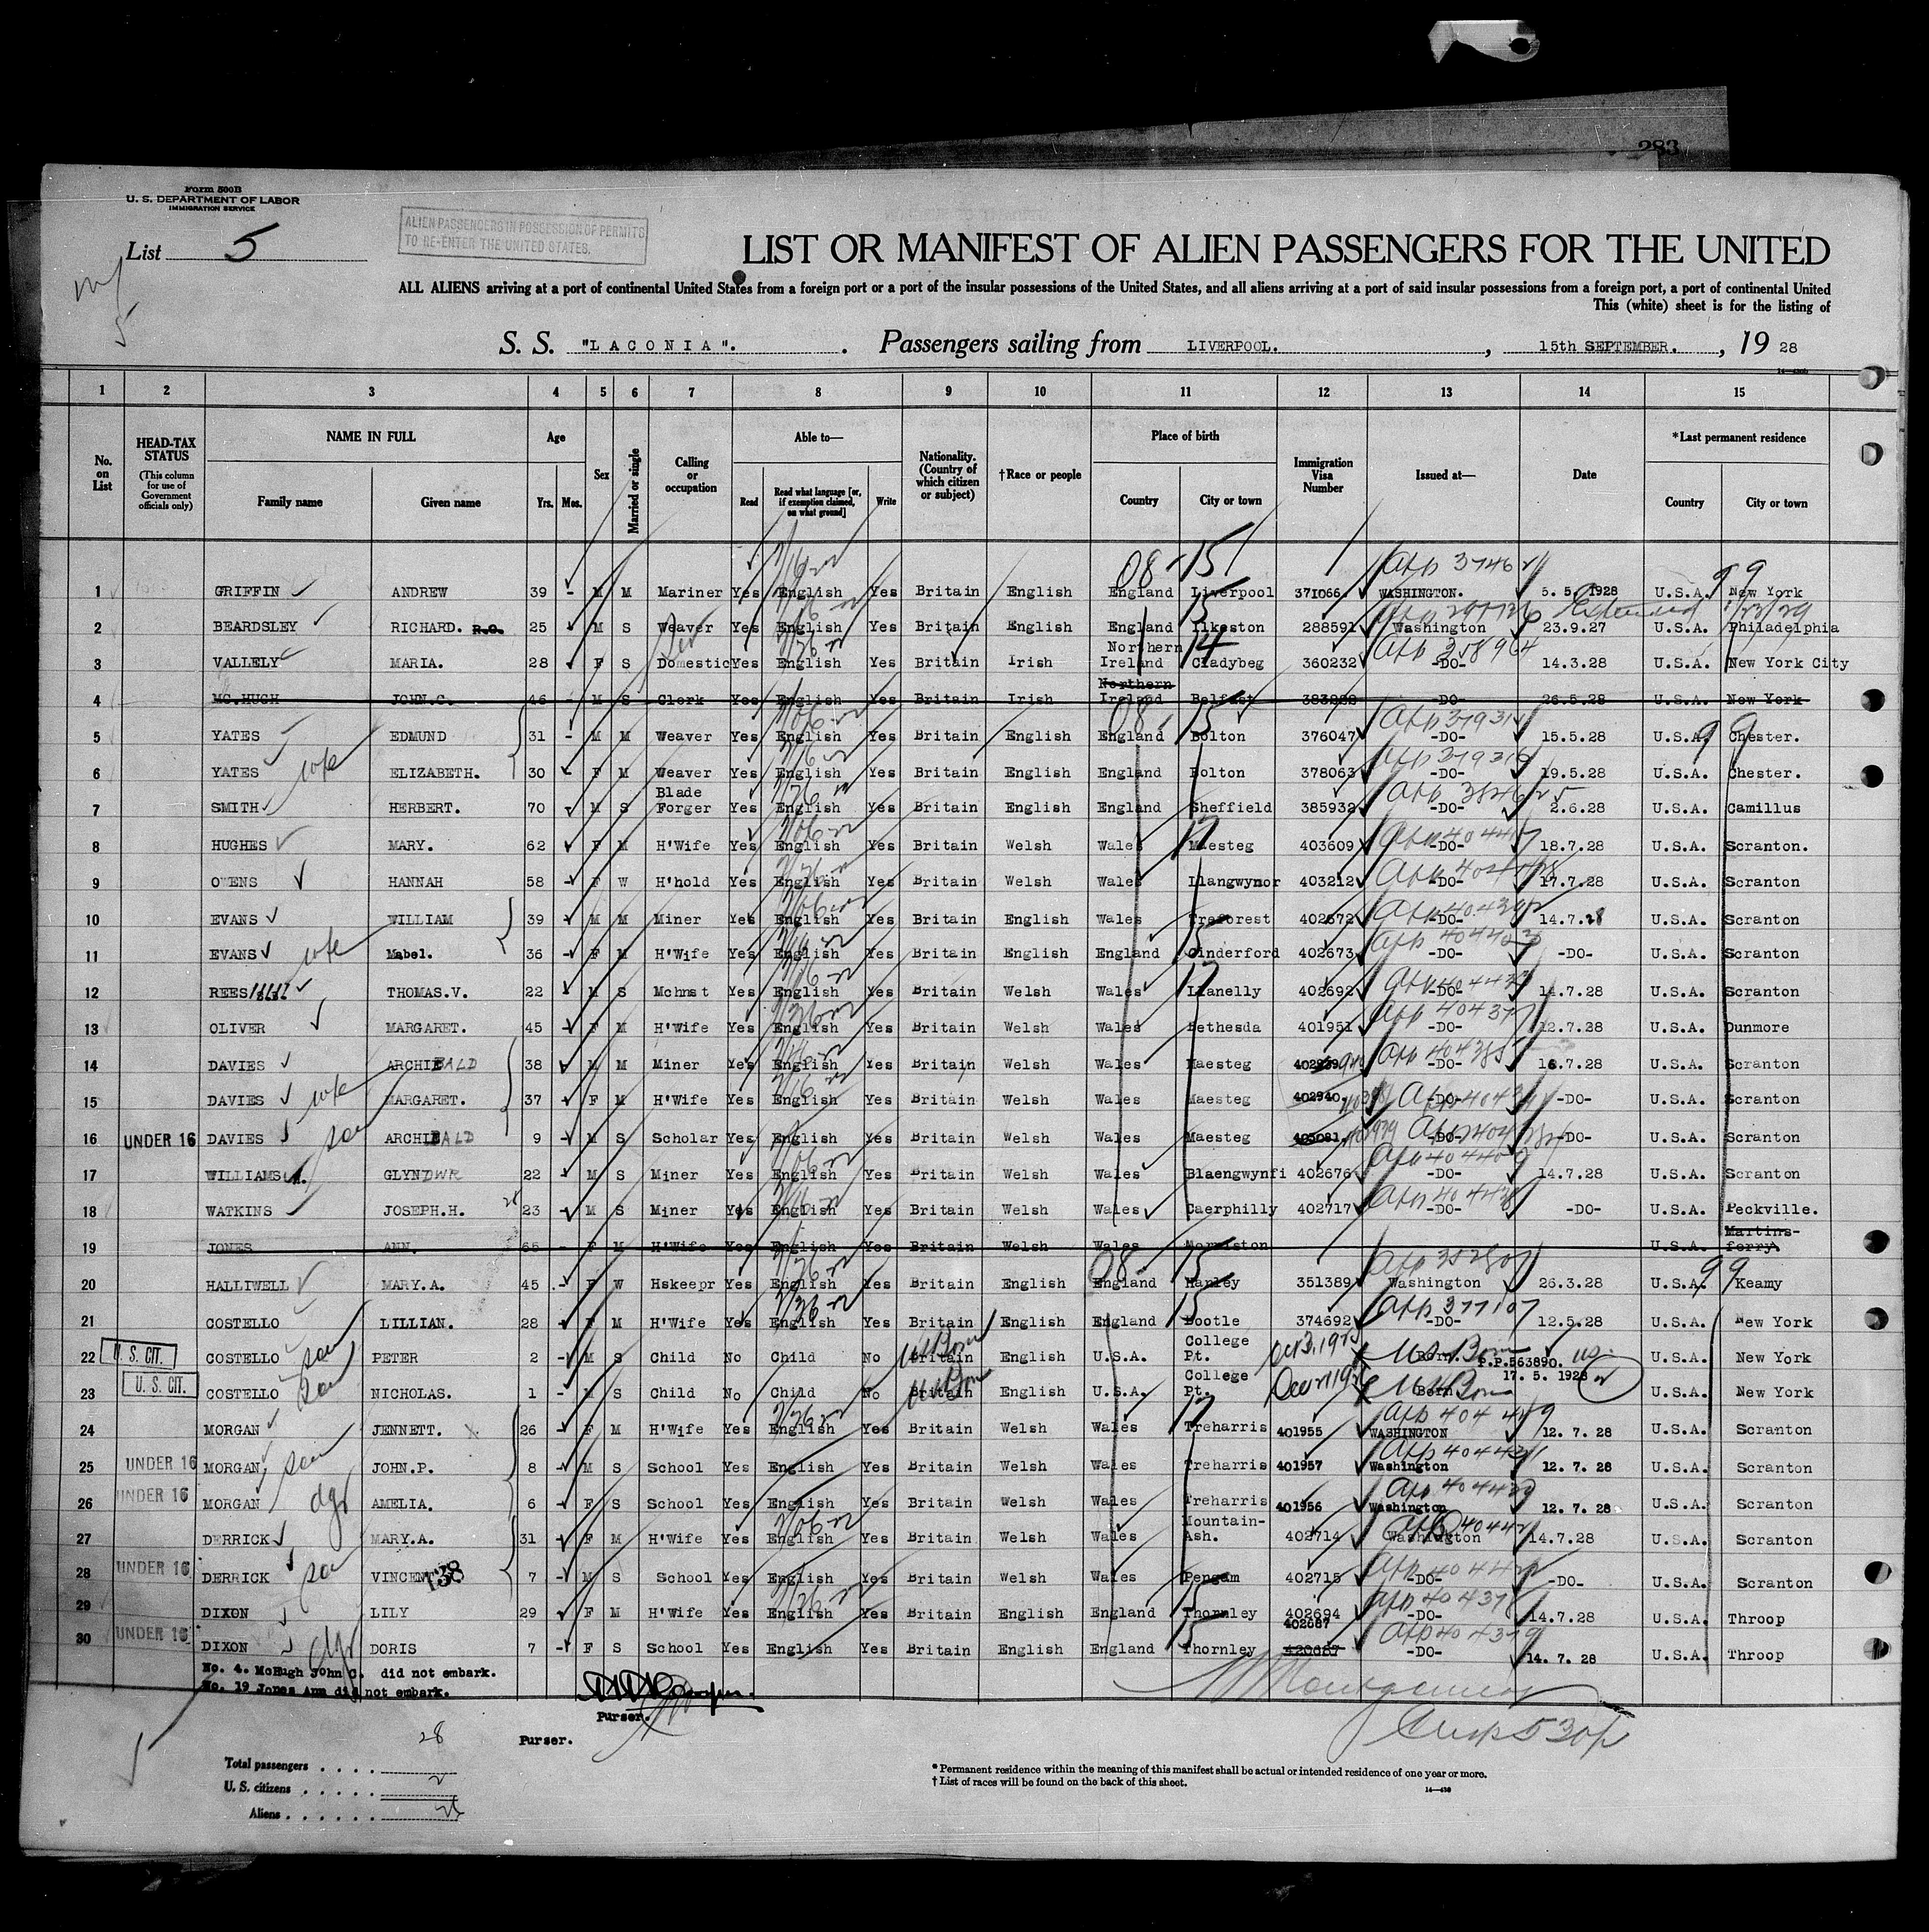 283
Form 500B
U. S. DEPARTMENT OF LABOR
IMMIGRATION SERVICE
ALIEN PASSENGERS IN POSSESSION OF PERMITS
TO RE-ENTER THE UNITED STATES.
List 5
LIST OR MANIFEST OF ALIEN PASSENGERS FOR THE UNITED
ALL ALIENS arriving at a port of continental United States from a foreign port or a port of the insular possessions of the United States, and all aliens arriving at a port of said insular possessions from a foreign port, a port of continental United
This (white) sheet is for the listing of
5
S. S. "LACONIA". Passengers sailing from LIVERPOOL. , 15th SEPTEMBER. , 19 28
1 2 3 4 5 6 7 8 9 10 11 12 13 14 15
No. on List HEAD-TAX STATUS (This column for use of Government officials only) NAME IN FULL Family name Given name Age Yrs. Mos. Sex Married or single Calling or occupation Able to— Read Read what language [or, if exemption claimed, on what ground] Write Nationality. (Country of which citizen or subject) †Race or people Place of birth Country City or town Immigration Visa Number Issued at— Date *Last permanent residence Country City or town
08 15 99
1 GRIFFIN ANDREW 39 - M M Mariner Yes English Yes Britain English England Liverpool 371066 WASHINGTON. 5. 5. 1928 U.S.A. New York
2 BEARDSLEY RICHARD. R.C. 25 M S Weaver Yes English Yes Britain English England Ilkeston 288591 Washington 23.9.27 U.S.A. Philadelphia
3 VALLELY MARIA. 28 F S Domestic Yes English Yes Britain Irish Northern Ireland Cladybeg 360232 -DO- 14.3.28 U.S.A. New York City
4 MC.HUGH JOHN.C. 46 - M S Clerk Yes English Yes Britain Irish Northern Ireland Belfast 383888 -DO- 26.5.28 U.S.A. New York
5 YATES EDMUND 31 - M M Weaver Yes English Yes Britain English England Bolton 376047 -DO- 15.5.28 U.S.A. Chester.
6 YATES wfe ELIZABETH. 30 - F M Weaver Yes English Yes Britain English England Bolton 378063 -DO- 19.5.28 U.S.A. Chester.
7 SMITH HERBERT. 70 M S Blade Forger Yes English Yes Britain English England Sheffield 385932 -DO- 2.6.28 U.S.A. Camillus
8 HUGHES MARY. 62 F M H'Wife Yes English Yes Britain Welsh Wales Maesteg 403609 -DO- 18.7.28 U.S.A. Scranton.
9 OWENS HANNAH 58 - F W H'hold Yes English Yes Britain Welsh Wales Llangwynor 403212 -DO- 17.7.28 U.S.A. Scranton
10 EVANS WILLIAM 39 M M Miner Yes English Yes Britain English Wales Treforest 402672 -DO- 14.7.28 U.S.A. Scranton
11 EVANS wfe Mabel. 36 - F M H'Wife Yes English Yes Britain English England Cinderford 402673 -DO- -DO- U.S.A. Scranton
12 REES THOMAS.V. 22 M S Mchnst Yes English Yes Britain Welsh Wales Llanelly 402692 -DO- 14.7.28 U.S.A. Scranton
13 OLIVER MARGARET. 45 - F M H'Wife Yes English Yes Britain Welsh Wales Bethesda 401951 -DO- 12.7.28 U.S.A. Dunmore
14 DAVIES ARCHIBALD 38 M M Miner Yes English Yes Britain Welsh Wales Maesteg -DO- 16.7.28 U.S.A. Scranton
15 DAVIES wfe MARGARET. 37 F M H'Wife Yes English Yes Britain Welsh Wales Maesteg 402940 -DO- -DO- U.S.A. Scranton
16 UNDER 16 DAVIES son ARCHIBALD 9 - M S Scholar Yes English Yes Britain Welsh Wales Maesteg 403081 -DO- -DO- U.S.A. Scranton
17 WILLIAMS GLYNDWR 22 - M S Miner Yes English Yes Britain Welsh Wales Blaengwynfi 402676 -DO- 14.7.28 U.S.A. Scranton
18 WATKINS JOSEPH.H. 23 - M S Miner Yes English Yes Britain Welsh Wales Caerphilly 402717 -DO- -DO- U.S.A. Peckville.
19 JONES ANN. 65 - F M H'Wife Yes English Yes Britain Welsh Wales Morriston U.S.A. Martins-ferry.
20 HALLIWELL MARY.A. 45 - F W Hskeepr Yes English Yes Britain English England Hanley 351389 Washington 26.3.28 U.S.A. Keamy
21 COSTELLO LILLIAN. 28 - F M H'Wife Yes English Yes Britain English England Bootle 374692 -DO- 12.5.28 U.S.A. New York
22 U. S. CIT. COSTELLO son PETER 2 - M S Child No Child No Britain US Born English U.S.A. College Pt. US Born P.P.563890. U.S.A. New York
23 U. S. CIT. COSTELLO son NICHOLAS. 1 - M S Child No Child No Britain US Born English U.S.A. College Pt. US Born 17. 5. 1928 U.S.A. New York
24 MORGAN JENNETT. 26 - F M H'Wife Yes English Yes Britain Welsh Wales Treharris 401955 WASHINGTON 12. 7. 28 U.S.A. Scranton
25 UNDER 16 MORGAN son JOHN.P. 8 - M S School Yes English Yes Britain Welsh Wales Treharris 401957 Washington 12. 7. 28 U.S.A. Scranton
26 UNDER 16 MORGAN dgr AMELIA. 6 - F S School Yes English Yes Britain Welsh Wales Treharris 401956 Washington 12. 7. 28 U.S.A. Scranton
27 DERRICK MARY.A. 31 F M H'Wife Yes English Yes Britain Welsh Wales Mountain-Ash. 402714 Washington 14.7.28 U.S.A. Scranton
28 UNDER 16 DERRICK son VINCENT 138 7 - M S School Yes English Yes Britain Welsh Wales Pengam 402715 -DO- -DO- U.S.A. Scranton
29 DIXON LILY 29 F M H'Wife Yes English Yes Britain English England Thornley 402694 -DO- 14.7.28 U.S.A. Throop
30 UNDER 16 DIXON dgr DORIS 7 - F S School Yes English Yes Britain English England Thornley 402687 420687 -DO- 14. 7. 28 U.S.A. Throop
No. 4. McHugh John C. did not embark.
No. 19 Jones Ann did not embark.
Purser.
Purser.
Total passengers . . . . 28
U. S. citizens . . . . . 2
Aliens . . . . . . 26
* Permanent residence within the meaning of this manifest shall be actual or intended residence of one year or more.
† List of races will be found on the back of this sheet.
14—430